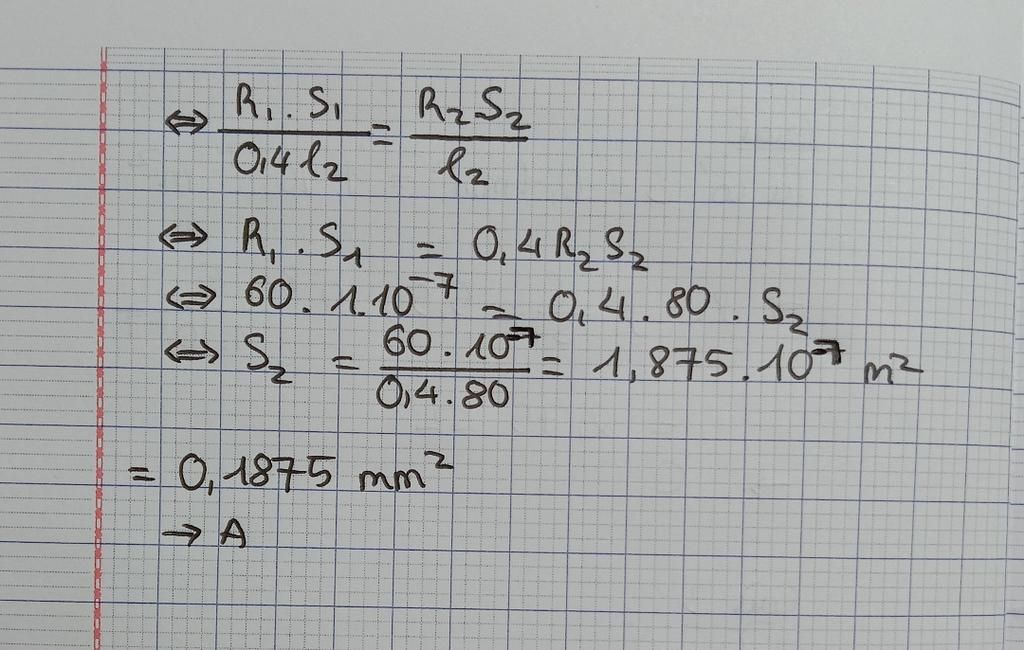 ⇔ R₁ . S₁ / 0,4 l₂ = R₂ S₂ / l₂
⇔ R₁ . S₁ = 0,4 R₂ S₂
⇔ 60 . 1.10⁻⁷ = 0,4 . 80 . S₂
⇔ S₂ = 60 . 10⁻⁷ / 0,4 . 80 = 1,875 . 10⁻⁷ m²
= 0,1875 mm²
→ A